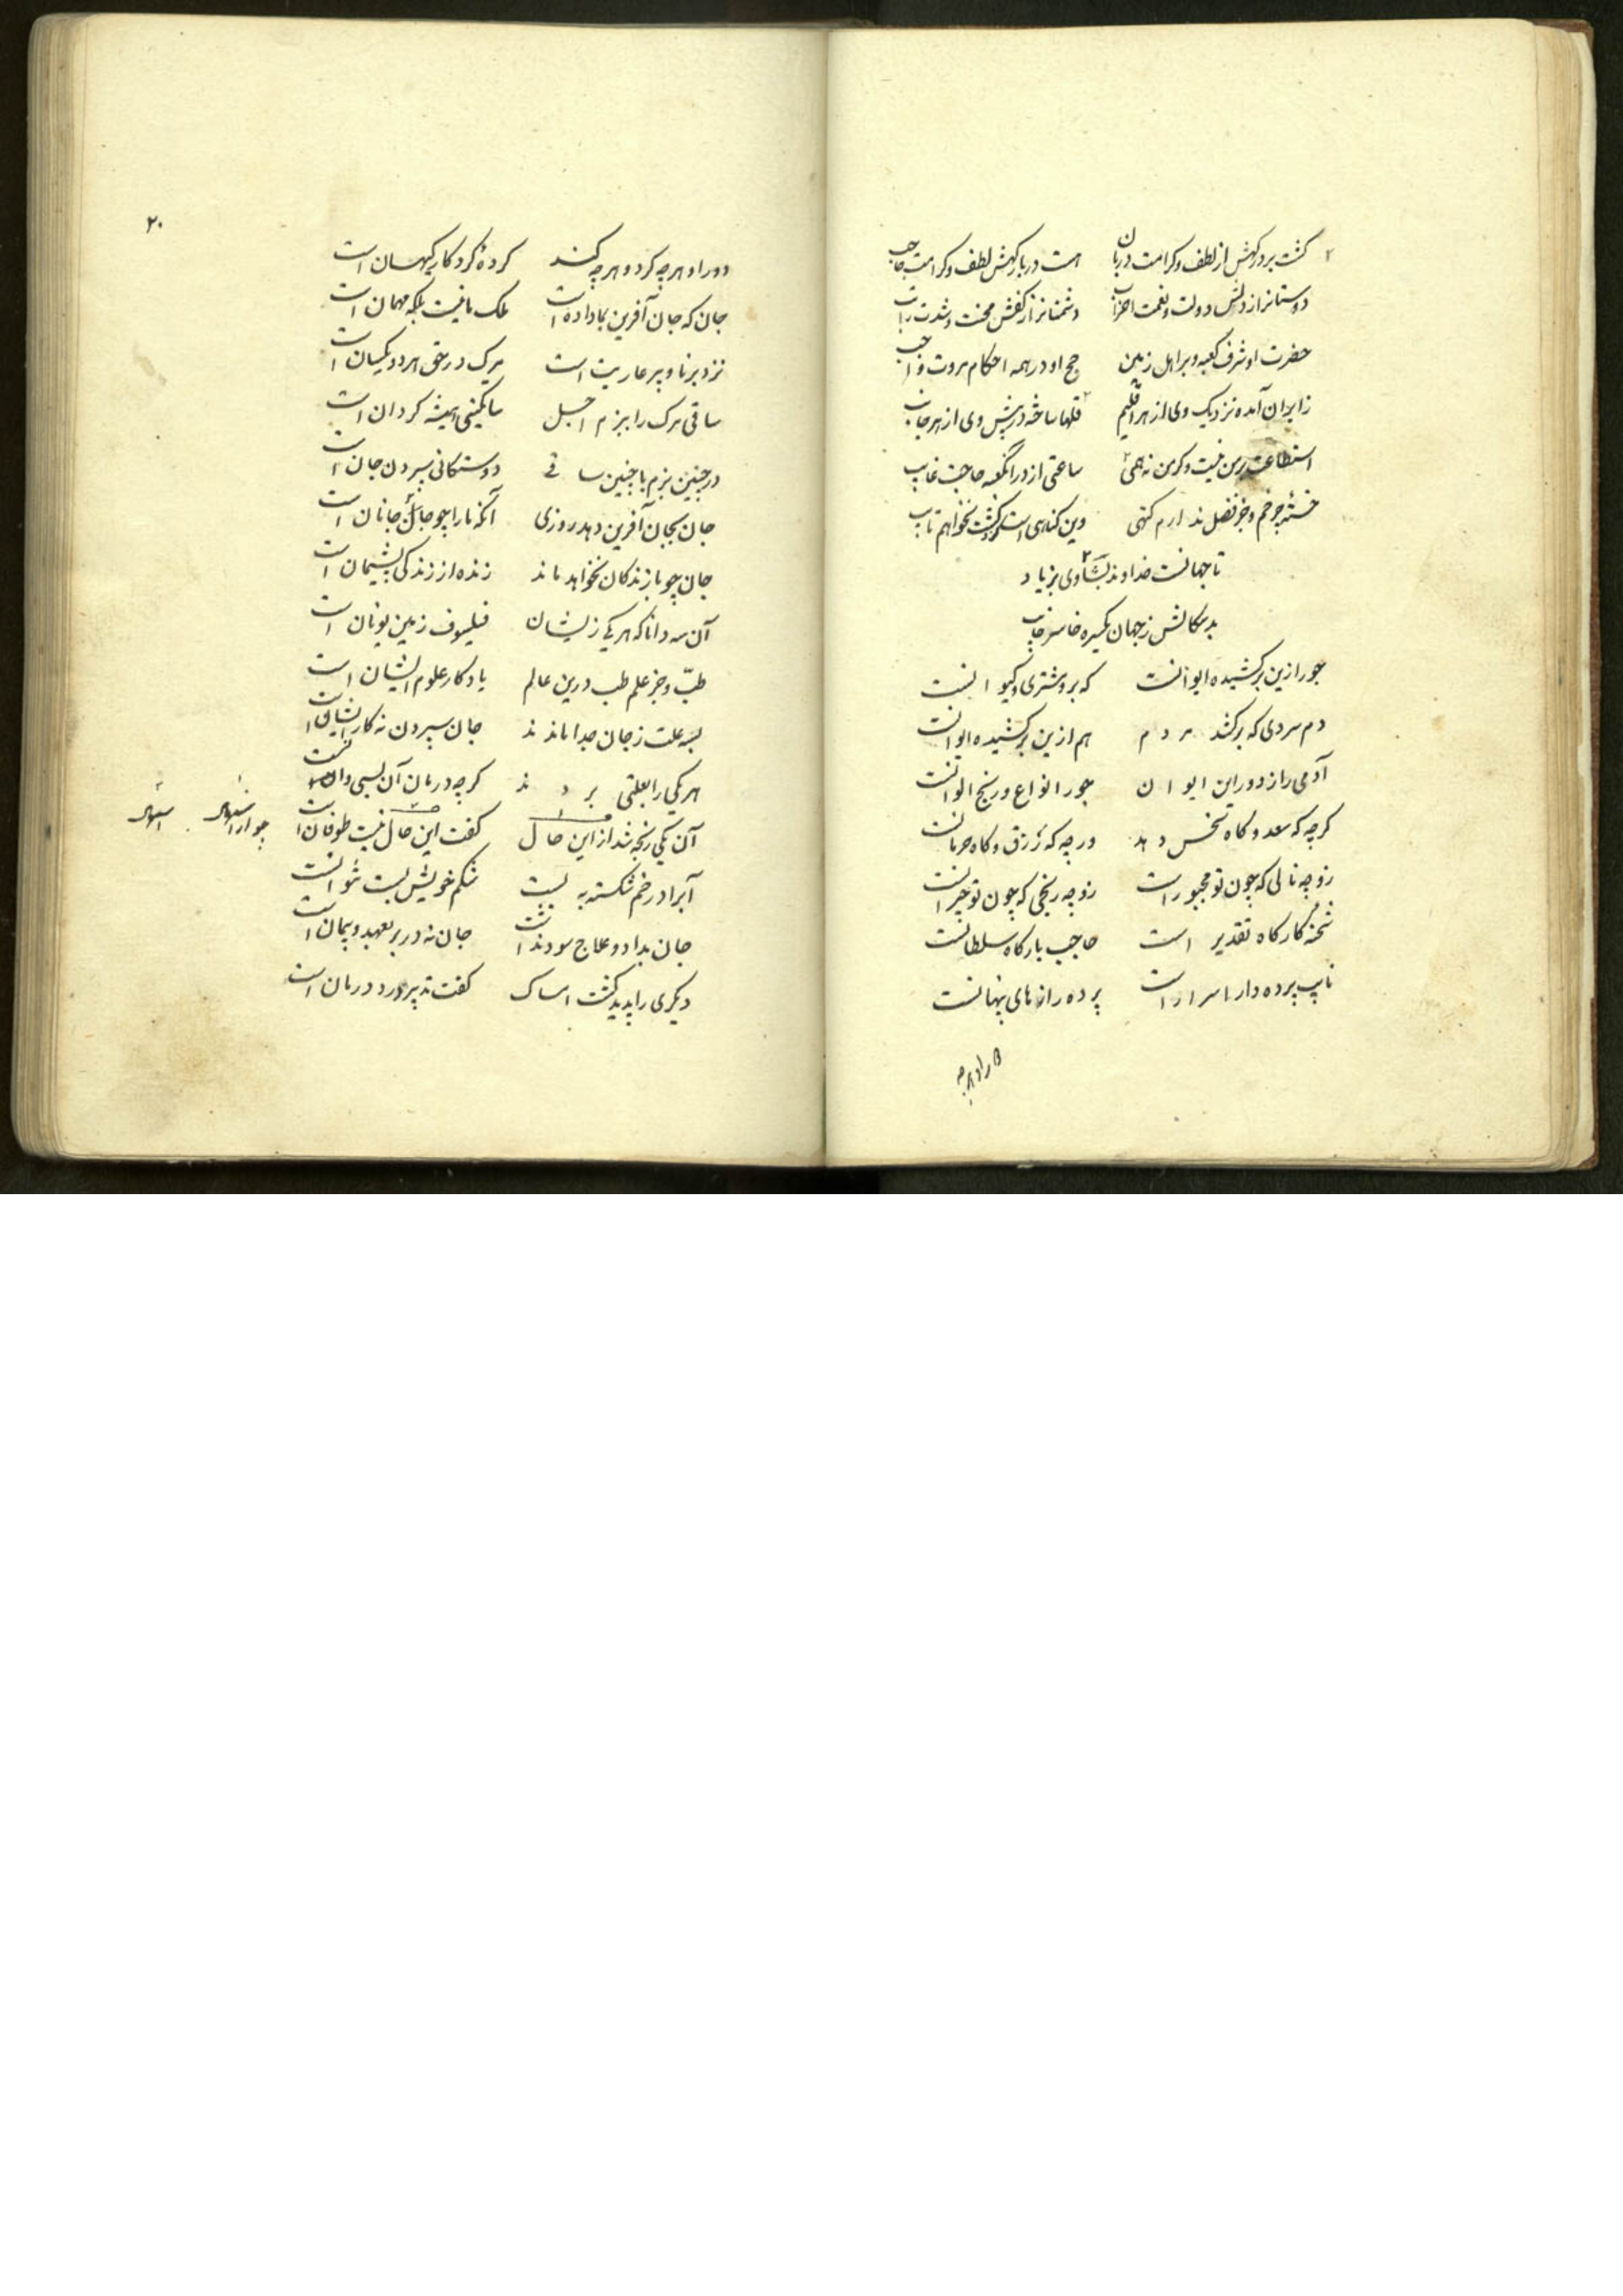 گشت بر درگهش از لطف و کرامت دربان هست در بارگهش لطف و کرامت حاجب
دوستانرا ز دلش دولت و نعمت دشمنانرا ز کفش محنت و شدت
حضرت او شرف کعبه و بر اهل زمین حج او در همه احکام مروت واجب
زایران آمده نزدیک وی از هر اقلیم ساخته در پیش وی از هر جانب
استطاعت نیست وگرنه نه همی ساعتی از در آنکعبه حاجت غایب
جز ندارم گنهی وین گناهی است کزو گشت نخواهم تایب
تا جهانست خداوند بشادی بزیاد
بدسگالش ز جهان یکسره خاسر خایب
جور ازین برکشیده ایوانست که برو مشتری و کیوانست
دم سردی که برکشد مردم هم ازین برکشیده ایوانست
آدمی را ز دور این ایوان جور انواع و رنج الوانست
گرچه گه سعد و گاه نحس دهد ورچه گه رزق و گاه حرمانست
زو چه نالی که چون تو مجبور است زو چه رنجی که چون تو حیرانست
شحنه کارگاه تقدیر است حاجب بارگاه سلطانست
نایب پرده دار اسرار است پرده رازهای پنهانست
دور او هرچه
۲۰
دور او هرچه کرد و هرچه کند کرده کردگار کیهان است
جان که جان آفرین بما داده است ملک ما نیست بلکه مهمان است
نزد برنا و پیر عاریت است مرگ در حق هر دو یکسان است
ساقی مرگ را ببزم اجل ساتگینی همیشه گردان است
در چنین بزم با چنین ساقی دوستگانی سپردن جان است
جان بجان آفرین دهد روزی آنکه ما را چو جان جانان است
جان چو با زندگان نخواهد ماند زنده از زندگی پشیمان است
آن سه دانا که هر یکی زیشان فیلسوف زمین یونان است
طب و جز علم طب درین عالم یادگار علوم ایشان است
بسه علت ز جان جدا ماندند جان سپردن نه کار ایشان است
هر یکی را بعلتی بردند گرچه درمان آن بسی دانست
آن یکی رنجه شد از این حال گفت این حال نیست طوفان است
آب را در خم شکسته ببست شکم خویش بست نتوانست
جان بداد و علاج سود نداشت جان نه در بر بعهد و پیمان است
دیگری را پدید گشت امساک گفت تدبیر درد درمان است